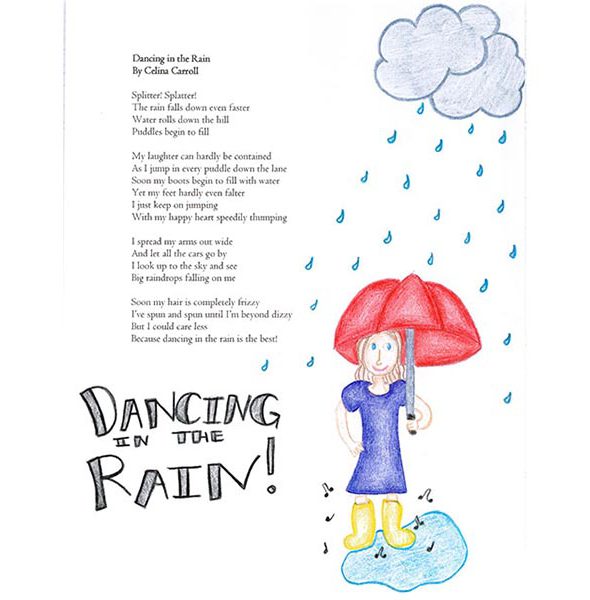 Dancing in the Rain
By Celina Carroll
Splitter! Splatter!
The rain falls down even faster
Water rolls down the hill
Puddles begin to fill
My laughter can hardly be contained
As I jump in every puddle down the lane
Soon my boots begin to fill with water
Yet my feet hardly even falter
I just keep on jumping
With my happy heart speedily thumping
I spread my arms out wide
And let all the cars go by
I look up to the sky and see
Big raindrops falling on me
Soon my hair is completely frizzy
I've spun and spun until I'm beyond dizzy
But I could care less
Because dancing in the rain is the best!
DANCING
IN THE
RAIN!